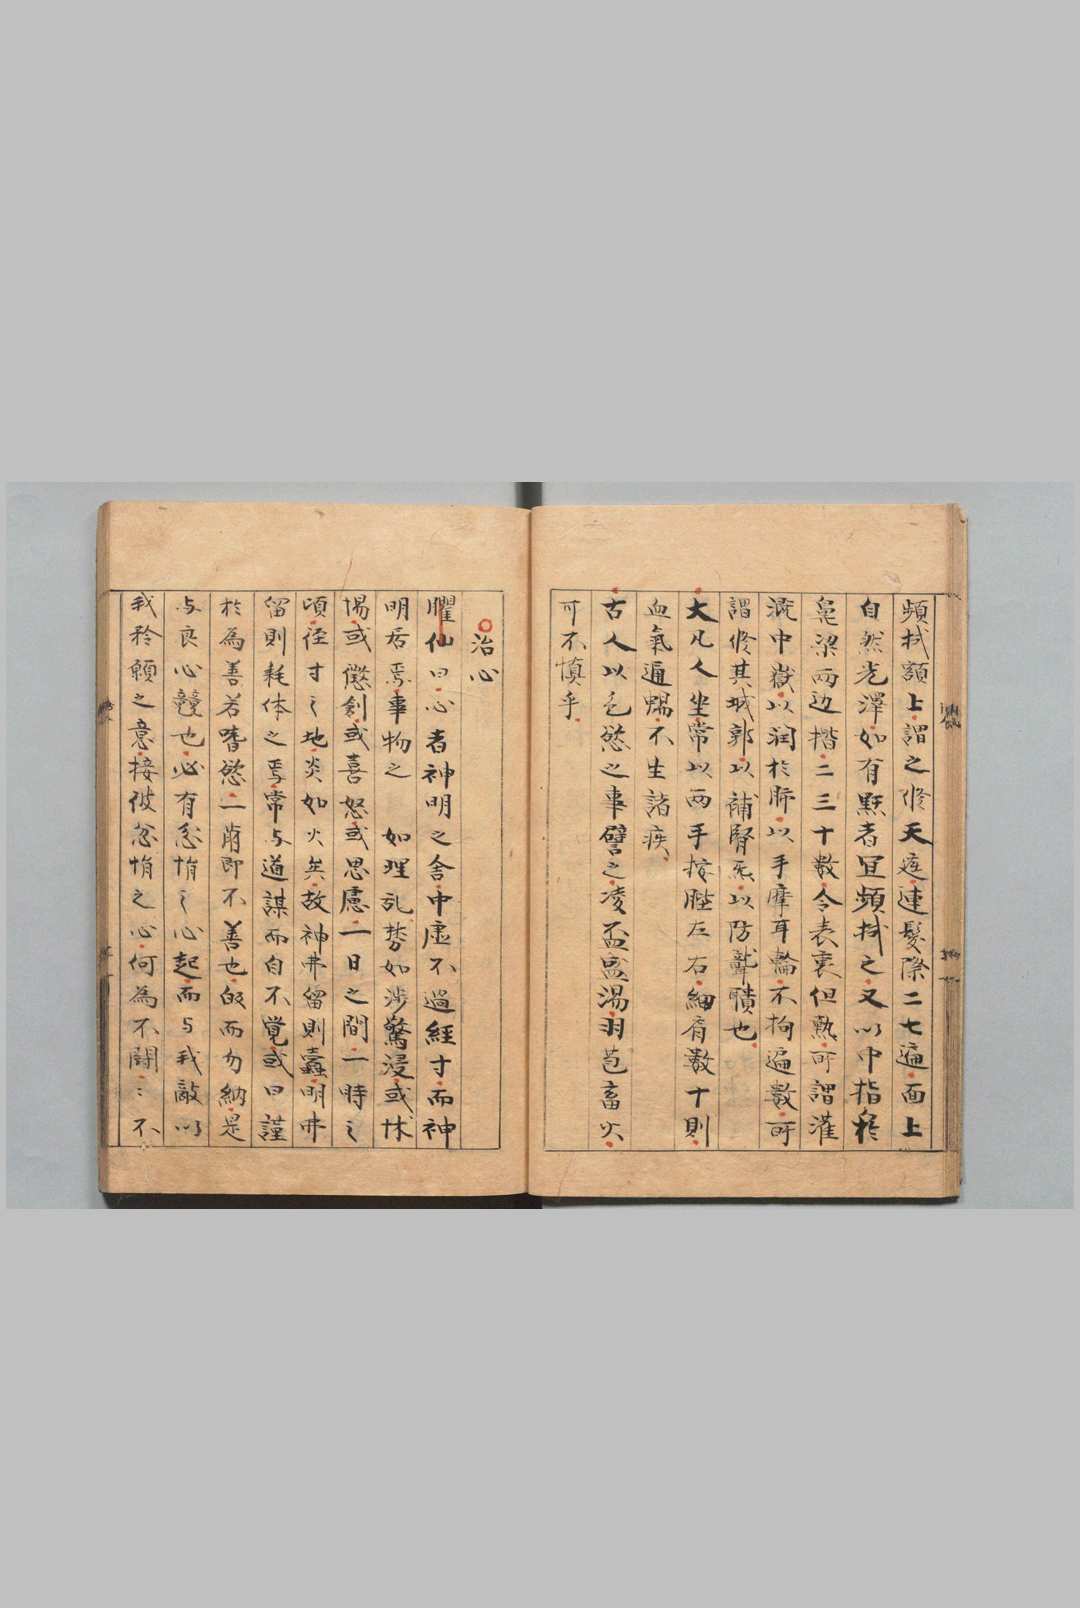 頻拭額上謂之修天庭連髮際二七遍面上
自然光澤如有黙者宜頻拭之又以中指於
鼻梁両边揩二三十数令表裏但熱可謂灌
漑中嶽以润於肺以手摩耳輪不拘遍数可
謂修其城郭以補腎炁以防聾聵也
大凡人坐常以両手按膝左右細肩数十則
血氣通暢不生諸疾
古人以色慾之事譬之凌盃盛湯羽苞畜火
可不慎乎
治心
臞仙曰心者神明之舍中虚不過経寸而神
明居焉事物之 如理乱棼如涉驚浸或怵
惕或懲創或喜怒或思慮一日之間一時之
頃徑寸之地炎如火矣故神弗留則蠧明弗
留則耗体之焉常与道謀而自不覚或曰謹
於為善若嗜慾一萌即不善也皈而勿納是
与良心競也必有忿悁之心起而与我敵以
我矜願之意接彼忿悁之心何為不闘々不